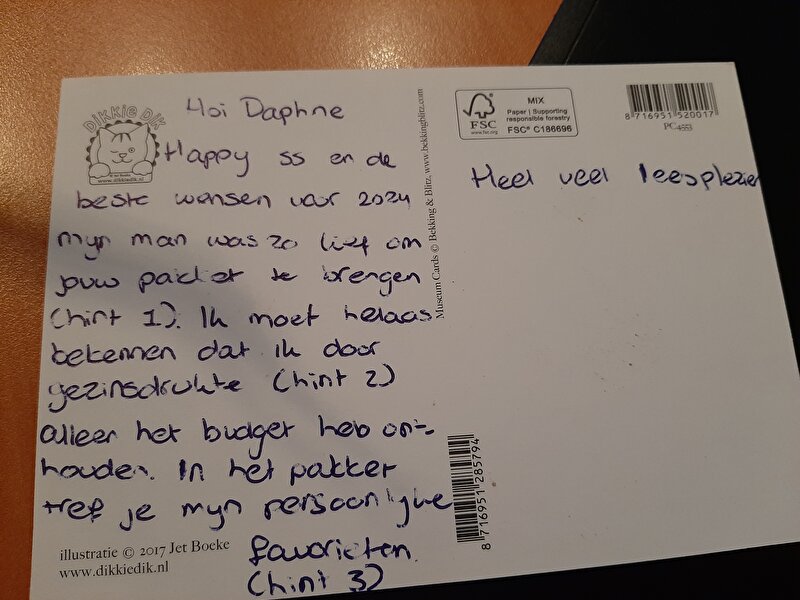 Dikkie Dik
© Jet Boeke
www.dikkiedik.nl
Hoi Daphne
Happy ss en de
beste wensen voor 2024
mijn man was zo lief om
jouw pakket te brengen
(hint 1). Ik moet helaas
bekennen dat ik door
gezinsdrukte (hint 2)
alleen het budget heb ont-
houden. In het pakket
tref je mijn persoonlijke
favorieten.
(hint 3)
illustratie © 2017 Jet Boeke
www.dikkiedik.nl
Museum Cards © Bekking & Blitz, www.bekkingblitz.com
FSC
www.fsc.org
MIX
Paper | Supporting
responsible forestry
FSC® C186696
8 716951 520017
PC4553
Heel veel leesplezier
8 716951 285794